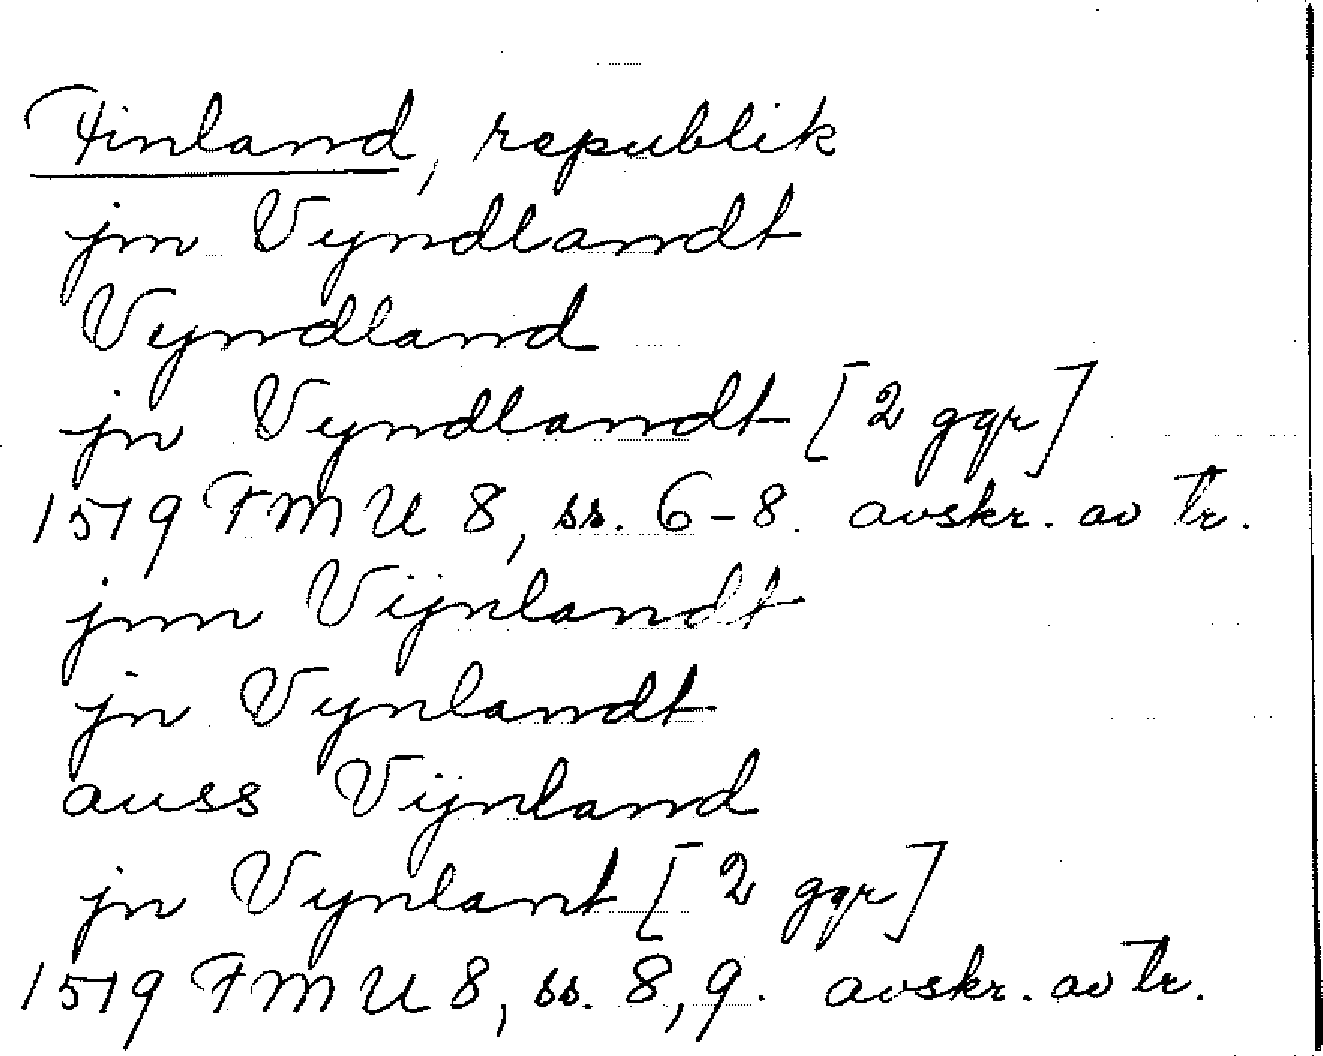 Finland, republik
jm Vyndlandt
Vyndland
jn Vyndlandt [2 ggr]
1519 FMU 8, ss. 6-8. avskr. av tr.
jnn Vijnlandt
jn Vynlandt
auss Vijnland
jn Vynlant [2 ggr]
1519 FMU 8, ss. 8, 9. avskr. av tr.